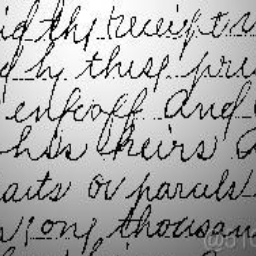 the receipt
by these pre
enfeoff and
his heirs
arts or parcels
one thousan